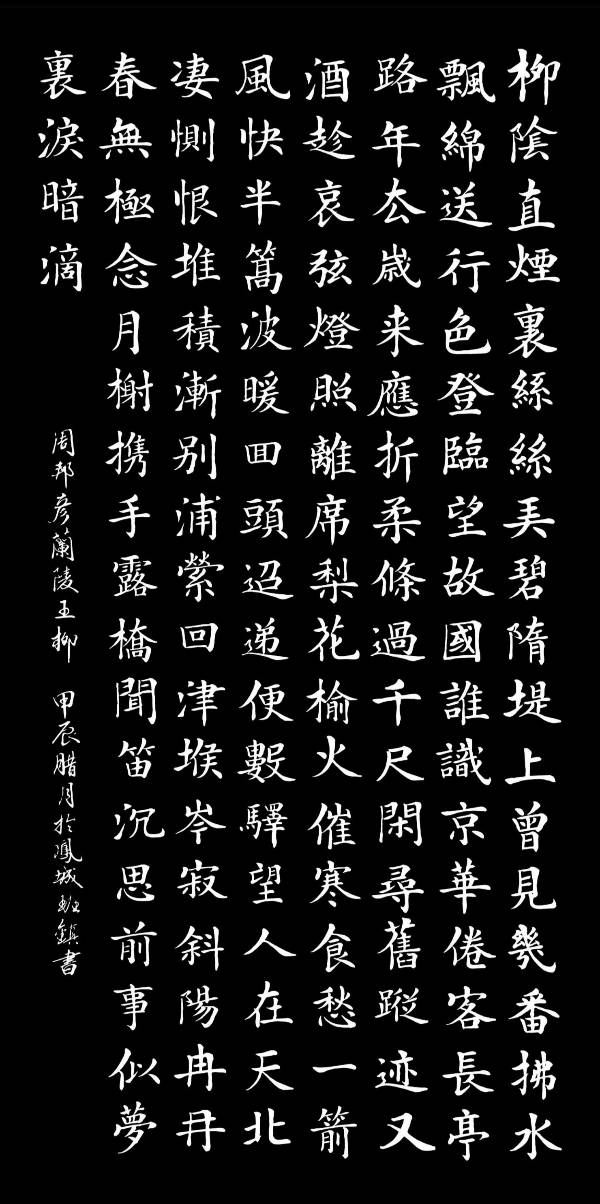 柳陰直煙裏絲絲弄碧隋堤上曾見幾番拂水
飄綿送行色登臨望故國誰識京華倦客長亭
路年去歲来應折柔條過千尺閑尋舊蹤迹又
酒趁哀弦燈照離席梨花榆火催寒食愁一箭
風快半篙波暖囬頭迢递便數驛望人在天北
凄惻恨堆積漸别浦縈回津堠岑寂斜陽冉冉
春無極念月榭携手露橋聞笛沉思前事似夢
裏淚暗滴
周邦彦蘭陵王柳 甲辰腊月於鳳城班鎮書